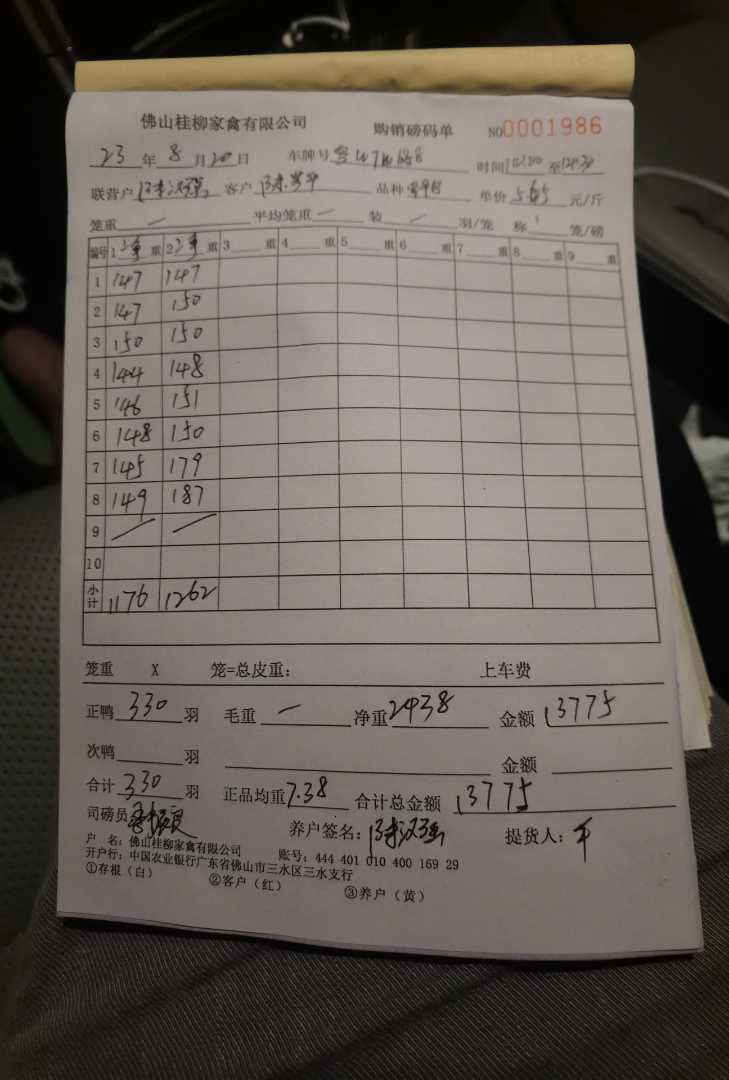 佛山桂柳家禽有限公司 购销磅码单 NO0001986
23年8月20日 车牌号 时间 至
联营户陈汉强 客户陈 品种 单价5.65元/斤
笼重 — 平均笼重 — 装 — 羽/笼 称 1 笼/磅
编号 1净重 重 2净重 重 3 重 4 重 5 重 6 重 7 重 8 重 9 重
1 147 147
2 147 150
3 150 150
4 144 148
5 146 151
6 148 150
7 145 179
8 149 187
9 / /
10
小计 1176 1262
笼重 X 笼=总皮重: 上车费
正鸭330羽 毛重 — 净重2438 金额13775
次鸭 羽 金额
合计330羽 正品均重7.38 合计总金额13775
司磅员 养户签名:陈汉强 提货人:平
户 名:佛山桂柳家禽有限公司 账号:444 401 010 400 169 29
开户行:中国农业银行广东省佛山市三水区三水支行
①存根(白) ②客户(红) ③养户(黄)